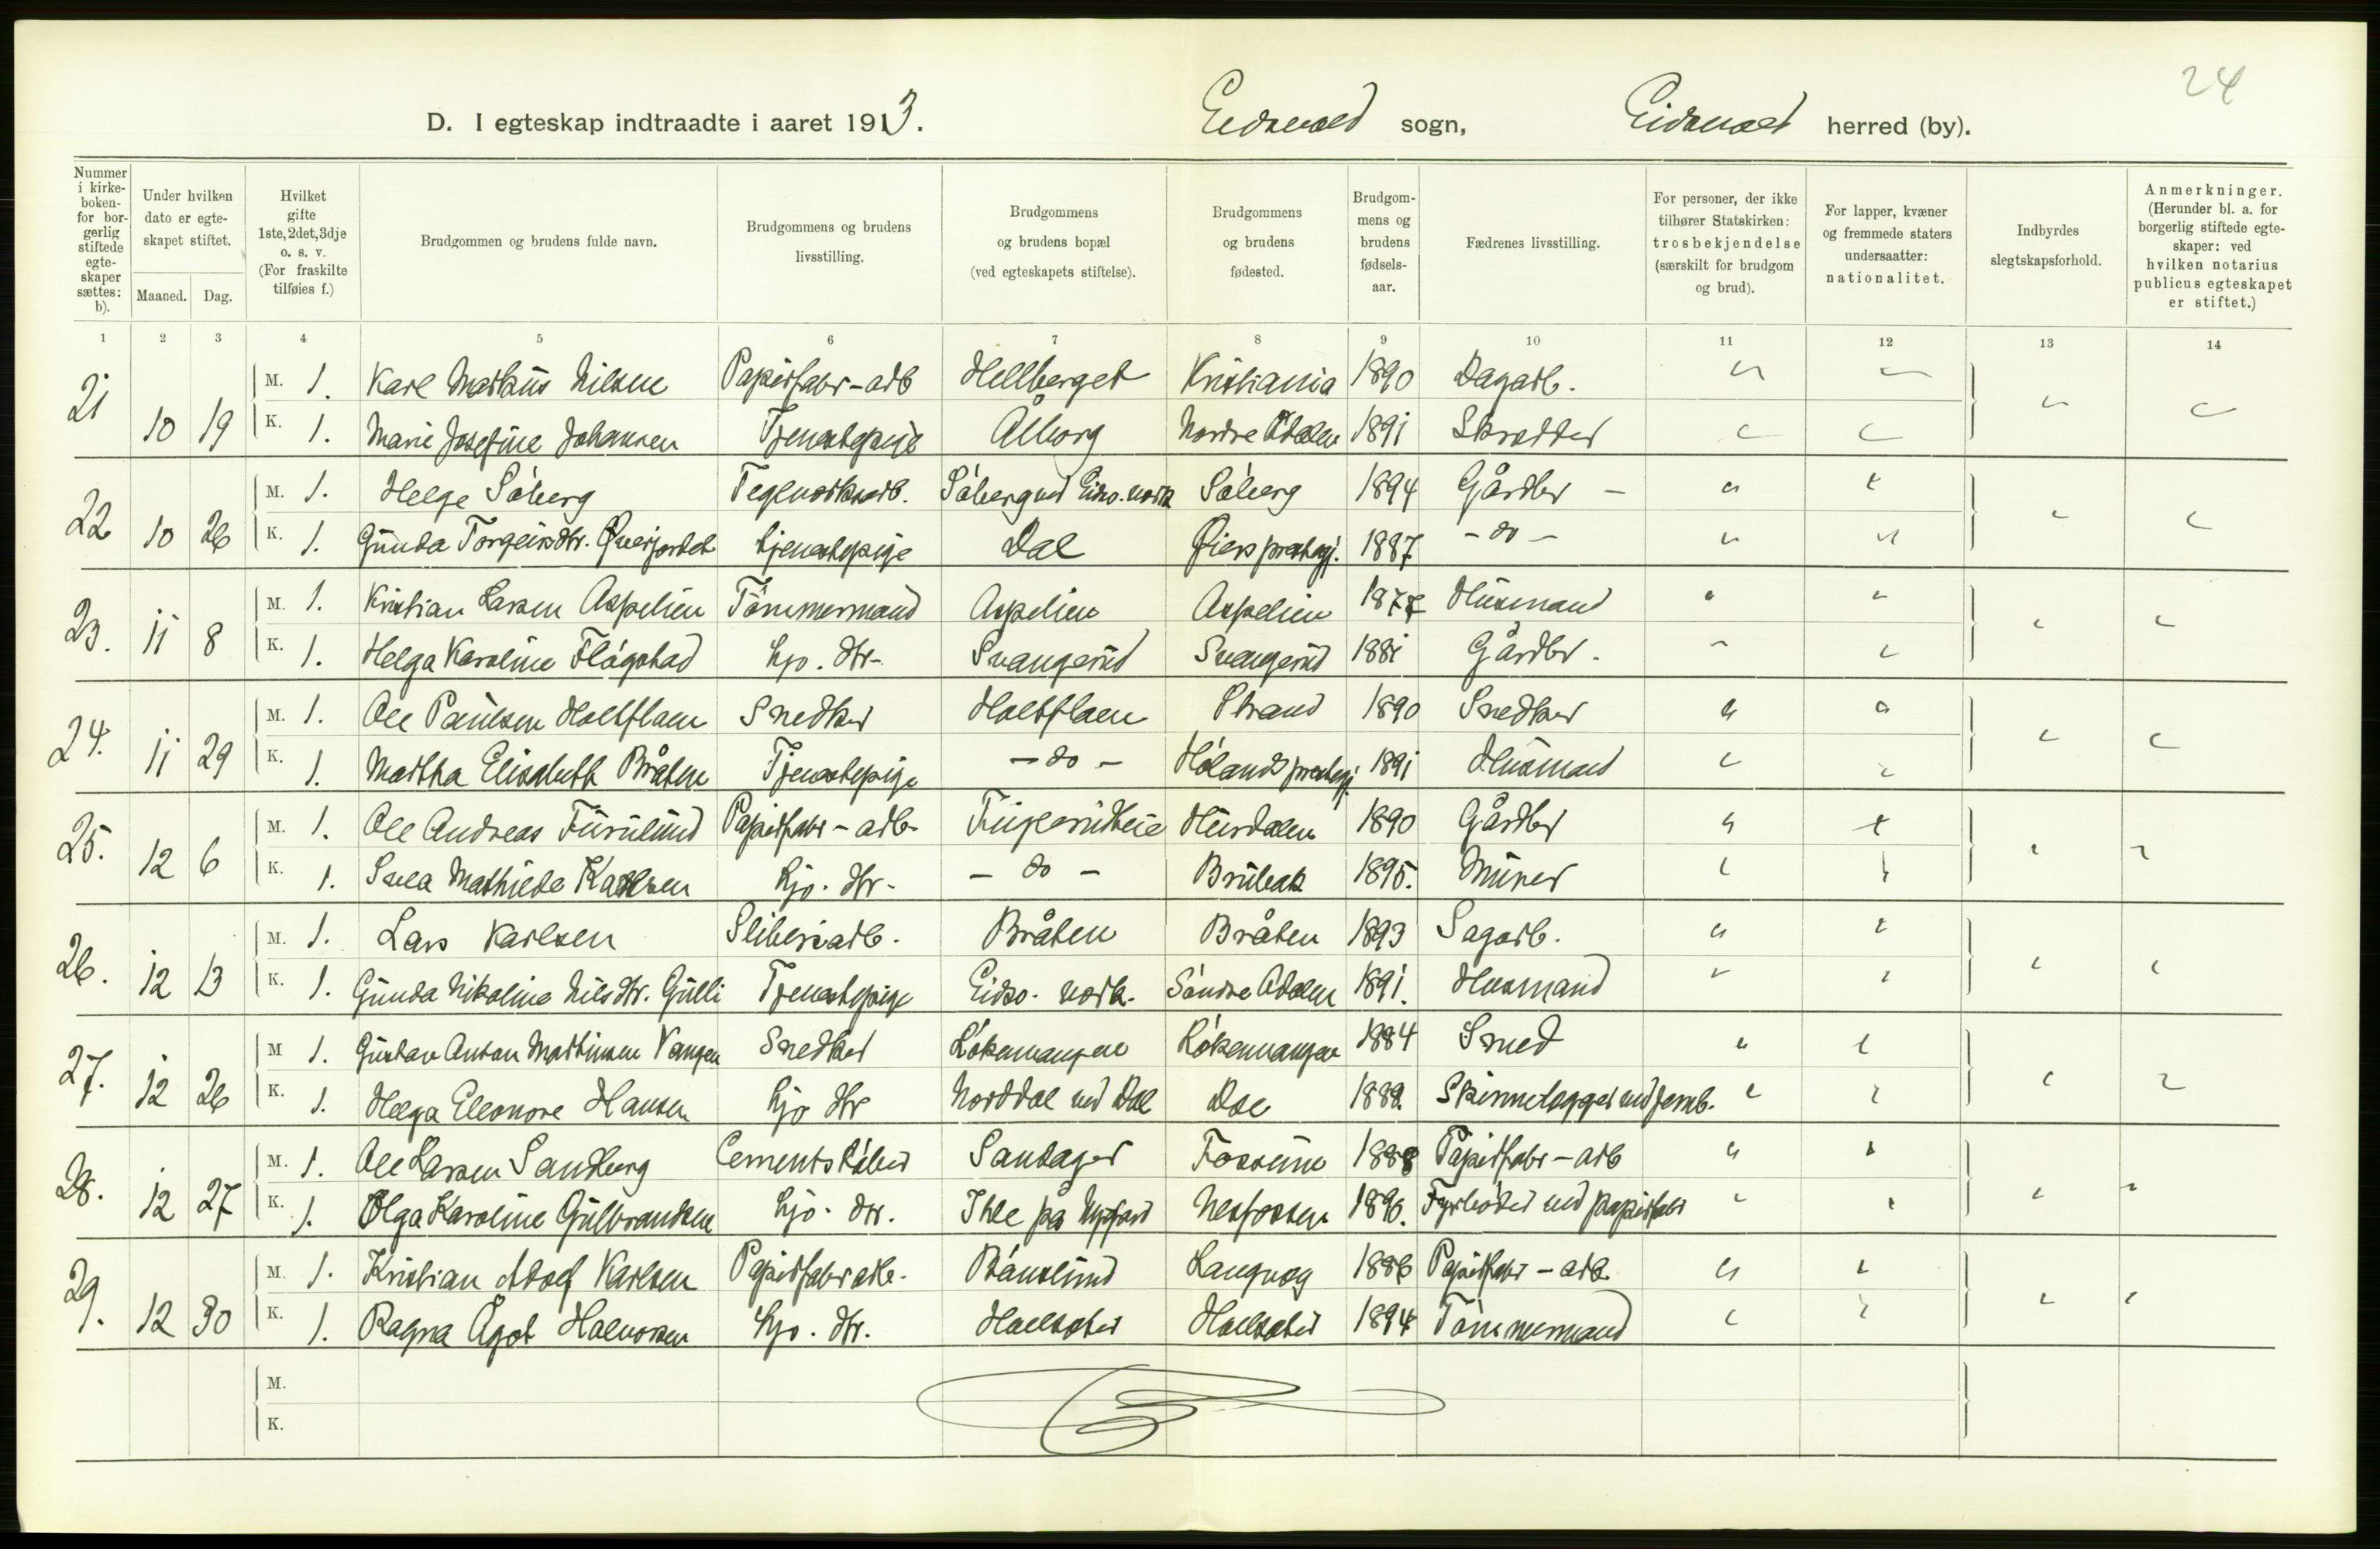 24
D. I egteskap indtraadte i aaret 1913. Eidsvold sogn, Eidsvold herred (by).
Nummer i kirke-boken- for bor-gerlig stiftede egte-skaper sættes: b).
Under hvilken dato er egte-skapet stiftet.
Maaned. Dag.
Hvilket gifte 1ste, 2det, 3dje o. s. v. (For fraskilte tilføies f.)
Brudgommen og brudens fulde navn.
Brudgommens og brudens livsstilling.
Brudgommens og brudens bopæl (ved egteskapets stiftelse).
Brudgommens og brudens fødested.
Brudgom-mens og brudens fødsels-aar.
Fædrenes livsstilling.
For personer, der ikke tilhører Statskirken: trosbekjendelse (særskilt for brudgom og brud).
For lapper, kvæner og fremmede staters undersaatter: nationalitet.
Indbyrdes slegtskapsforhold.
Anmerkninger. (Herunder bl. a. for borgerlig stiftede egte-skaper: ved hvilken notarius publicus egteskapet er stiftet.)
1 2 3 4 5 6 7 8 9 10 11 12 13 14
21 M. 1. Karl Markus Nilsen Papirfabr-arb Hellberget Kristiania 1890 Dagarb.
10 19 K. 1. Marie Josefine Johansen Tjenestepige Ålborg Nordre Odalen 1891 Skrædder
22 M. 1. Helge Sóberg Teglverksarb. Sóberg ved Eidsv. verk Sóberg 1894 Gårdbr -
10 26 K. 1. Gunda Torgeirsdtr. Øverjordet tjenestepige Dal Øiers prestegj. 1887 - do -
23. M. 1. Kristian Larsen Aspelien Tómmermand Aspelien Aspelien 1877 Husmand
11 8 K. 1. Helga Karoline Flógstad hjv. dtr- Svangerud Svangerud 1881 Gårdbr.
24. M. 1. Ole Paulsen Holtflaen Snedker Holtflaen Strand 1890 Snedker
11 29 K. 1. Martha Elisabeth Bråten Tjenestepige - do - Hólands prestegj. 1891 Husmand
25. M. 1. Ole Andreas Furulund Papirfabr - arb. Hurdalen 1890 Gårdbr
12 6 K. 1. Svea Mathilde Karlsen hjv. dtr- - do - Brubak 1895. Murer
26. M. 1. Lars Karlsen Sliberiarb. Bråten Bråten 1893 Sagarb.
12 13 K. 1. Gunda Nikoline Nilsdtr. Gulli Tjenestepige Eidsv. verk. Sóndre Odalen 1891. Husmand
27. M 1. Gustav Anton Martinsen Vangen Snedker Lókenvangen Lókenvangen 1884 Smed
12 26 K. 1. Helga Eleonore Hansen hjv dtr Norddal ved Dal Dal 1889. Skinnelægger ved jernb.
28. M. 1. Ole Larsen Sandberg Cementstóber Sandager Fossum 1888 Papirfabr - arb
12 27 K. 1. Olga Karoline Gulbrandsen hjv. dtr. Ihle på Nesfossen 1890. Fyrbóter ved papirfabr
29. M. 1. Kristian Adolf Karlsen Papirfabrarb. Langvag 1886 Papirfabr - arb.
12 30 K. 1. Ragna Ågot Halvorsen hjv. dtr. Holtsæter Holtsæter 1894 Tómmermand
M.
K.